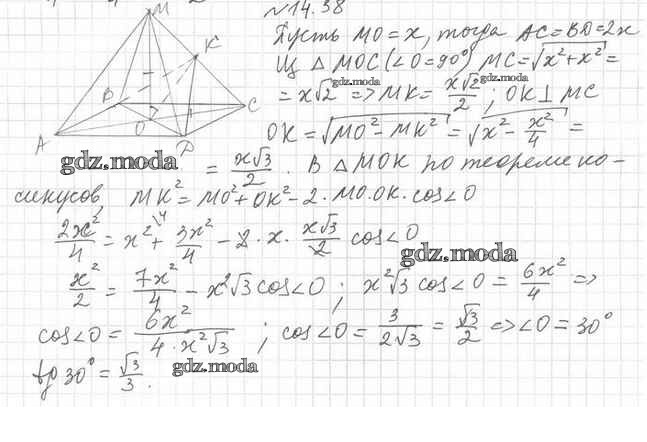 №14.38
Пусть MO = x, тогда AC = BD = 2x
Из △ MOC (∠O = 90°) MC = √(x² + x²) =
= x√2 => MK = x√2/2 ; OK ⊥ MC
OK = √(MO² - MK²) = √(x² - x²/4) =
= x√3/2 . В △MOK по теореме ко-
синусов, MK² = MO² + OK² - 2·MO·OK·cos∠O
2x²/4 = x² + 3x²/4 - 2·x·x√3/2 cos∠O
x²/2 = 7x²/4 - x²√3 cos∠O ; x²√3 cos∠O = 6x²/4 =>
cos∠O = 6x²/(4·x²√3) ; cos∠O = 3/(2√3) = √3/2 => ∠O = 30°
tg 30° = √3/3 .
M
K
B
C
A
O
D
gdz.moda
gdz.moda
gdz.moda
gdz.moda
gdz.moda